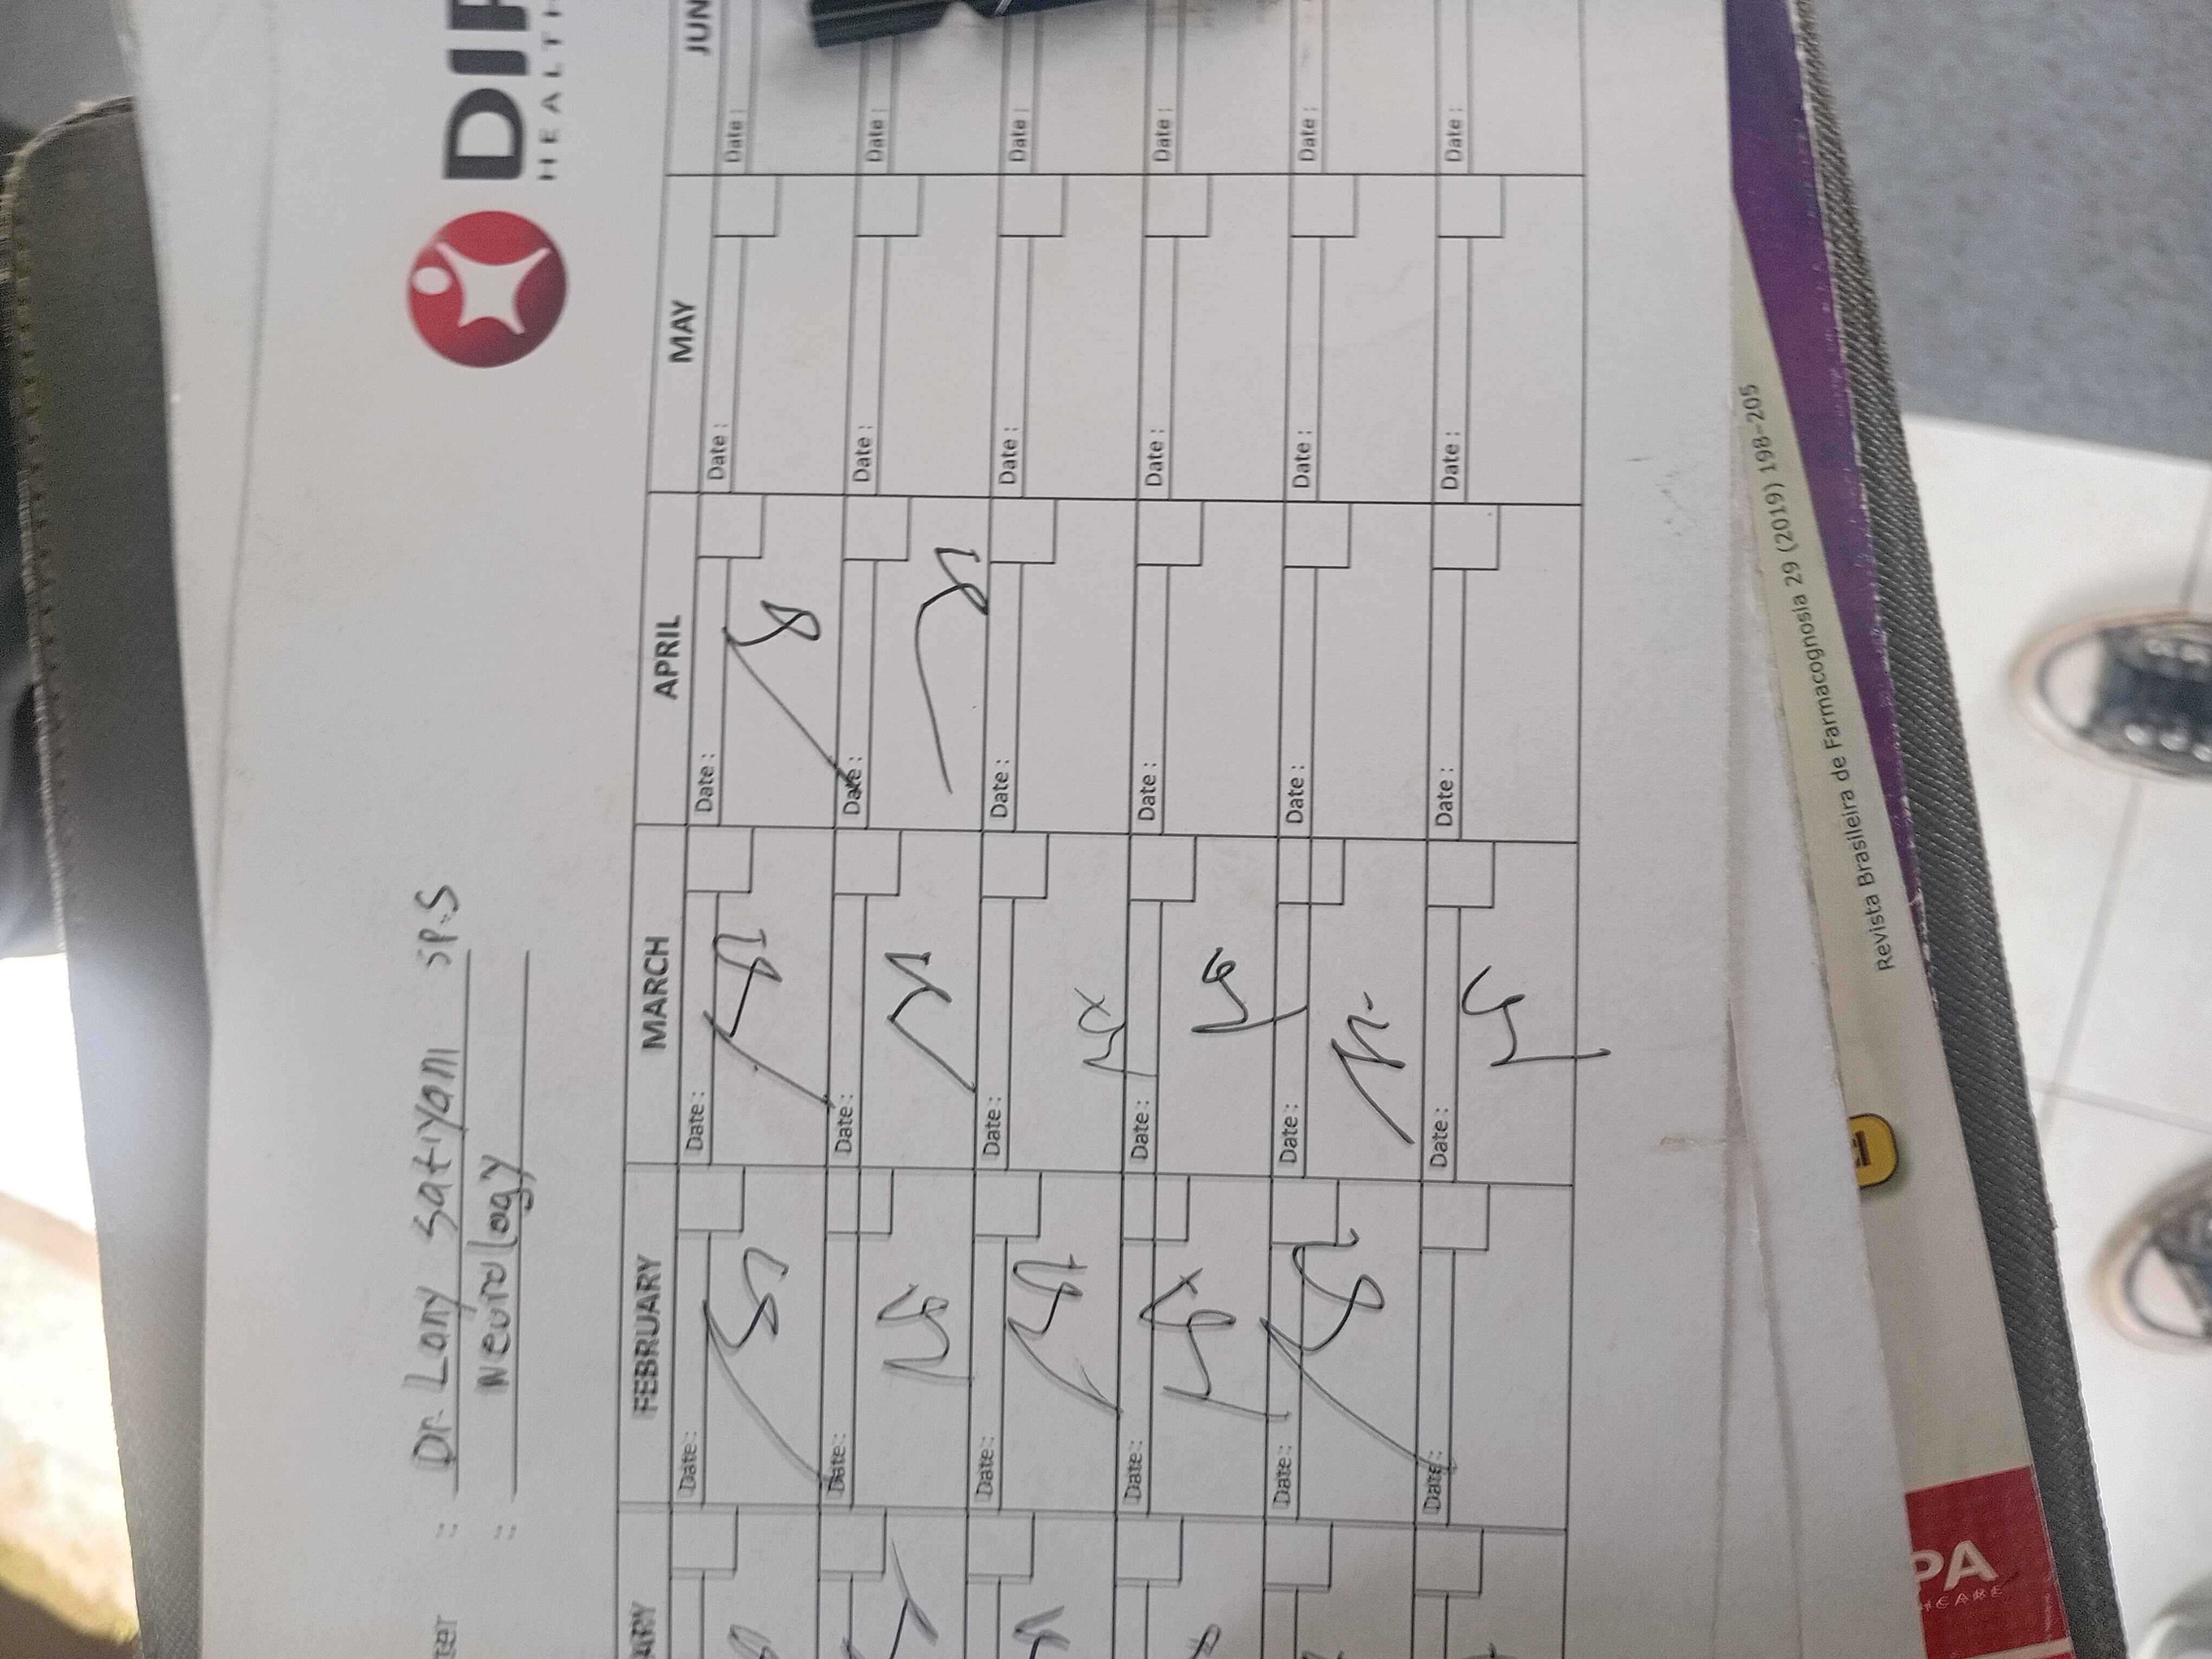 DIP
HEALTH
: Dr Lany satiyani SP.S
: Neurology
FEBRUARY MARCH APRIL MAY JUN
Date: Date: Date: Date: Date:
Date: Date: Date: Date: Date:
Date: Date: Date: Date: Date:
Date: Date: Date: Date: Date:
Date: Date: Date: Date: Date:
Date: Date: Date: Date: Date:
Revista Brasileira de Farmacognosia 29 (2019) 198-205
PA